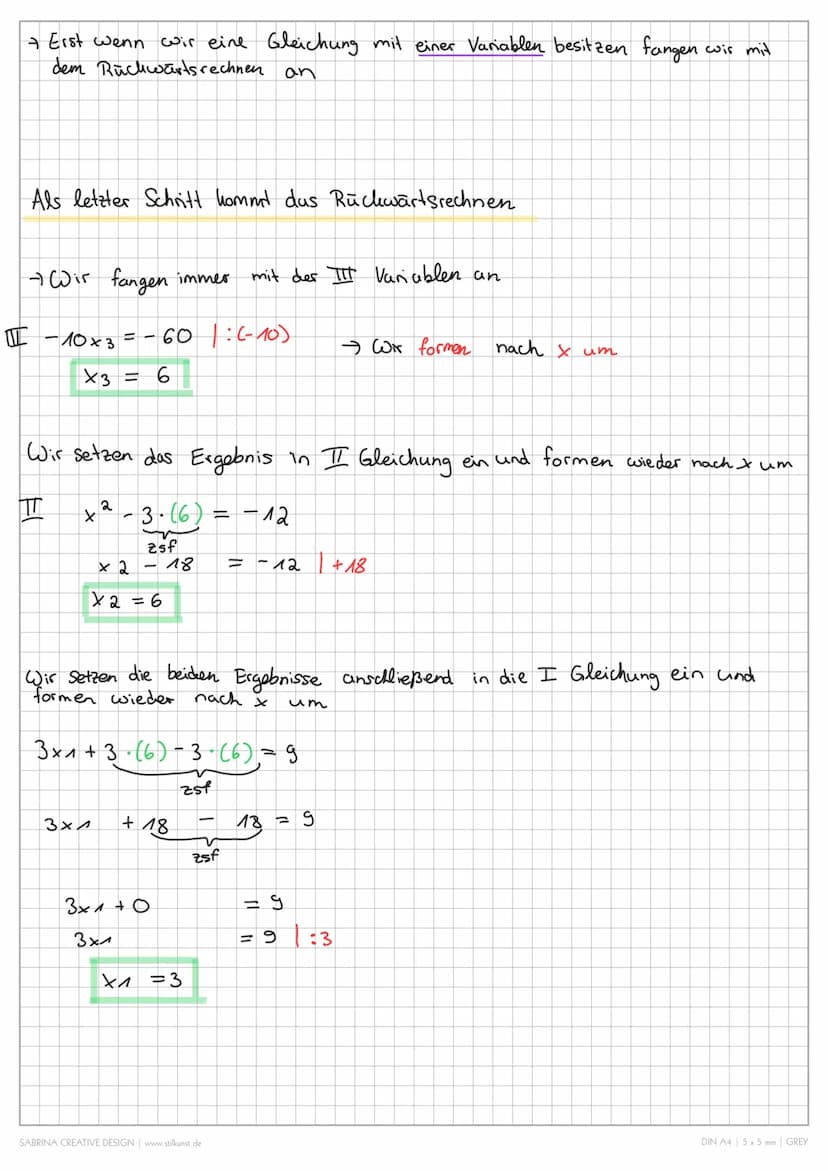 → Erst wenn wir eine Gleichung mit einer Variablen besitzen fangen wir mit
dem Rückwärtsrechnen an
Als letzter Schritt kommt das Rückwärtsrechnen
→ Wir fangen immer mit der III Variablen an
III -10x3 = -60 | :(-10)
→ Wir formen nach x um
x3 = 6
Wir setzen das Ergebnis in II Gleichung ein und formen wieder nach x um
II x² - 3·(6) = -12
zsf
x2 - 18 = -12 | +18
x2 = 6
Wir setzen die beiden Ergebnisse anschließend in die I Gleichung ein und
formen wieder nach x um
3x1 + 3·(6) - 3·(6) = 9
zsf
3x1 + 18 - 18 = 9
zsf
3x1 + 0 = 9
3x1 = 9 | :3
x1 = 3
SABRINA CREATIVE DESIGN | www.stilkunst.de
DIN A4 | 5 x 5 mm | GREY